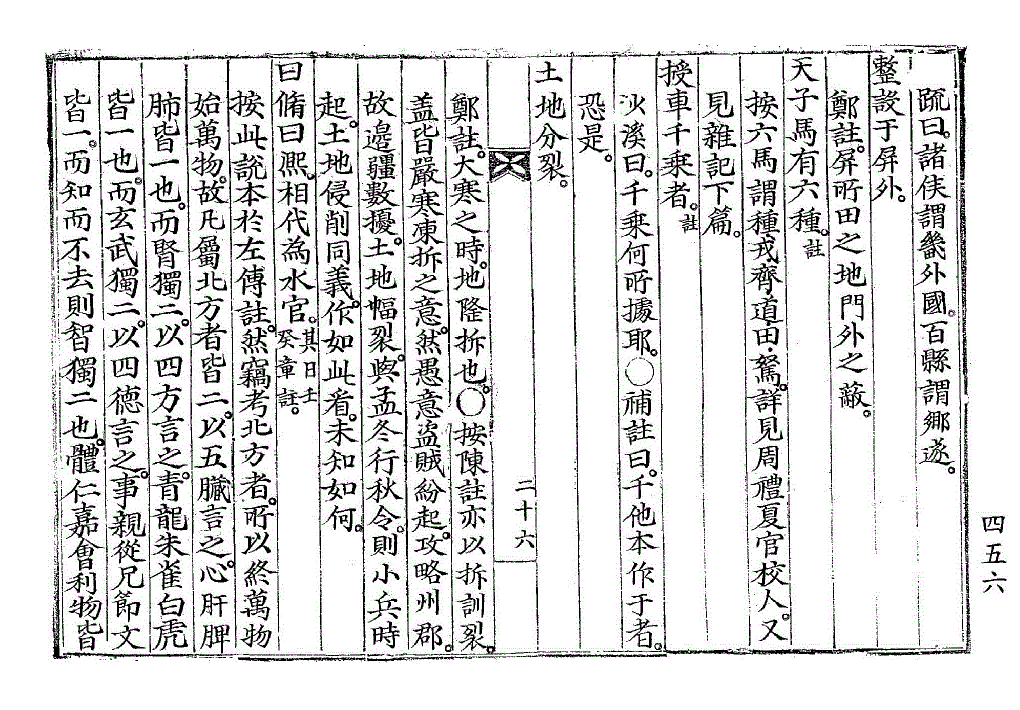 疏曰。諸侯謂畿外國。百縣謂鄉遂。
整設于屛外。
鄭註。屛所田之地門外之蔽。
天子馬有六種。註
按六馬謂種戎齊道田駑。詳見周禮夏官校人。又
見雜記下篇。
授車千乘者。註
沙溪曰。千乘何所據耶。○補註曰。千他本作于者。
恐是。
土地分裂。
二十六
鄭註。大寒之時。地隆拆也。○按陳註亦以拆訓裂。
盖皆嚴寒凍拆之意。然愚意盜賊紛起。攻略州郡。
故邊疆數擾。土地幅裂。與孟冬行秋令。則小兵時
起。土地侵削同義。作如此看。未知如何。
曰脩曰熙。相代為水官。其日壬
癸章註。
按此說本於左傳註。然竊考北方者。所以終萬物
始萬物。故凡屬北方者皆二。以五臟言之。心肝脾
肺皆一也。而腎獨二。以四方言之。青龍朱雀白虎
皆一也。而玄武獨二。以四德言之。事親從兄節文
皆一。而知而不去則智獨二也。體仁嘉會利物皆
四五六